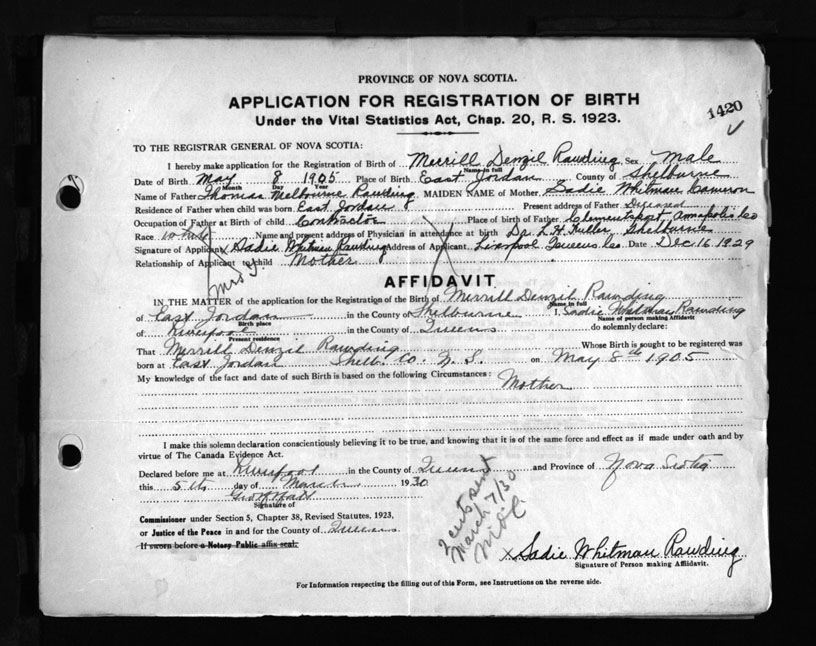 PROVINCE OF NOVA SCOTIA.
1420
APPLICATION FOR REGISTRATION OF BIRTH
Under the Vital Statistics Act, Chap. 20, R. S. 1923.
TO THE REGISTRAR GENERAL OF NOVA SCOTIA:
I hereby make application for the Registration of Birth of Merrill Denzil Rawding Sex Male
Name in full
Date of Birth May 8 1905 Place of Birth East Jordan County of Shelburne
Month Day Year
Name of Father Thomas Melbourne Rawding MAIDEN NAME of Mother Sadie Whitman Cameron
Residence of Father when child was born East Jordan Present address of Father Deceased
Occupation of Father at Birth of child Contractor Place of birth of Father Clementsport Annapolis Co
Race White Name and present address of Physician in attendance at birth Dr. L. H. Fuller Shelburne
Signature of Applicant Sadie Whitman Rawding Address of Applicant Liverpool Queens Co. Date Dec. 16 1929
Relationship of Applicant to child Mother
Mrs T.
AFFIDAVIT
IN THE MATTER of the application for the Registration of the Birth of Merrill Denzil Rawding
Name in full
of East Jordan in the County of Shelburne I, Sadie Whitman Rawding
Birth place Name of person making Affidavit
of Liverpool in the County of Queens do solemnly declare:
Present residence
That Merrill Denzil Rawding Whose Birth is sought to be registered was
born at East Jordan Shelb. Co. N. S. on May 8th 1905
My knowledge of the fact and date of such Birth is based on the following Circumstances: Mother
I make this solemn declaration conscientiously believing it to be true, and knowing that it is of the same force and effect as if made under oath and by
virtue of The Canada Evidence Act.
Declared before me at Liverpool in the County of Queens and Province of Nova Scotia
this 5th day of March 1930
Signature of
Commissioner under Section 5, Chapter 38, Revised Statutes, 1923,
or Justice of the Peace in and for the County of Queens
If sworn before a Notary Public affix seal.
2 certs sent
March 7/30
X Sadie Whitman Rawding
Signature of Person making Affidavit.
For Information respecting the filling out of this Form, see Instructions on the reverse side.